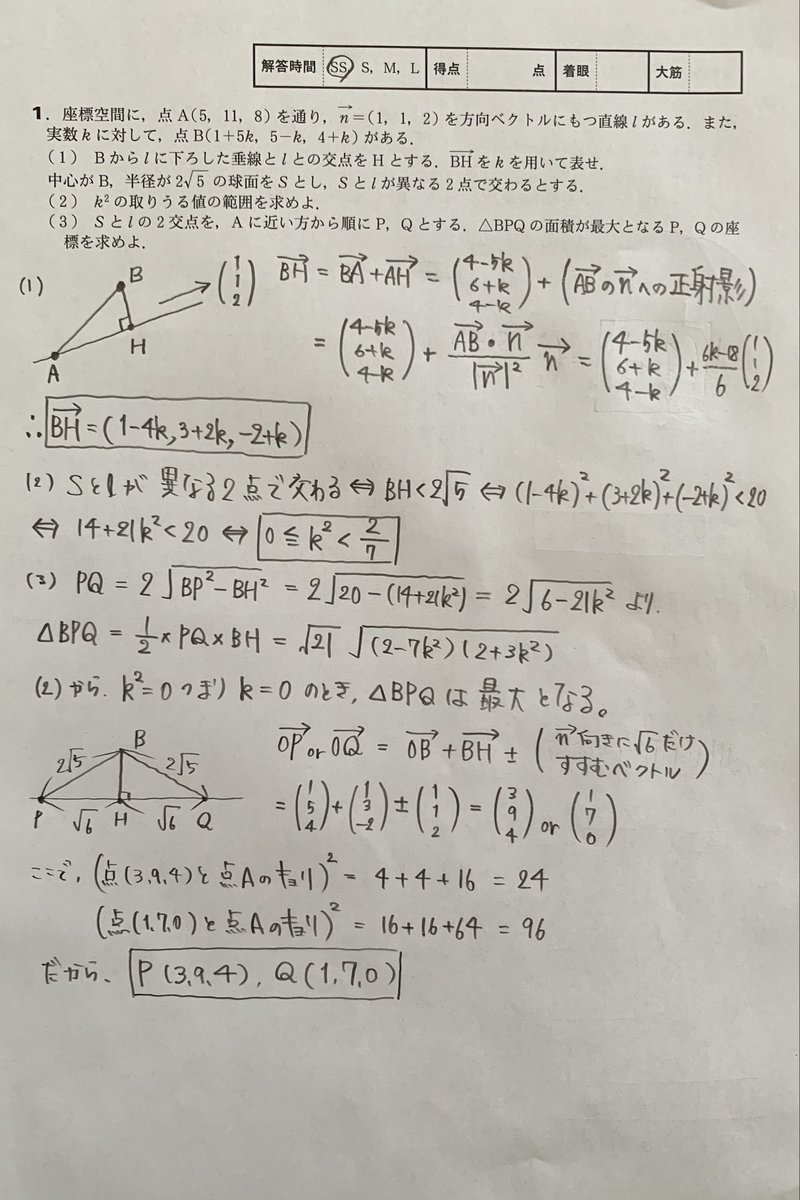 解答時間 SS, S, M, L 得点 点 着眼 大筋
1. 座標空間に,点A(5,11,8)を通り,n→=(1,1,2)を方向ベクトルにもつ直線lがある.また,
実数kに対して,点B(1+5k,5−k,4+k)がある.
(1) Bからlに下ろした垂線とlとの交点をHとする.BH→をkを用いて表せ.
中心がB,半径が2√5の球面をSとし,Sとlが異なる2点で交わるとする.
(2) k²の取りうる値の範囲を求めよ.
(3) Sとlの2交点を,Aに近い方から順にP,Qとする.△BPQの面積が最大となるP,Qの座
標を求めよ.
(1) B H A (1 1 2) BH→ = BA→ + AH→ = (4−5k 6+k 4−k) + (AB→のn→への正射影)
= (4−5k 6+k 4−k) + AB→・n→/|n→|² n→ = (4−5k 6+k 4−k) + 6k−18/6 (1 1 2)
∴ BH→ = (1−4k, 3+2k, −2+k)
(2) Sとlが異なる2点で交わる ⇔ BH<2√5 ⇔ (1−4k)²+(3+2k)²+(−2+k)²<20
⇔ 14+21k²<20 ⇔ 0≦k²<2/7
(3) PQ = 2√(BP²−BH²) = 2√(20−(14+21k²)) = 2√(6−21k²) より.
△BPQ = 1/2 × PQ × BH = √21 √((2−7k²)(2+3k²))
(2)から. k²=0 つまり k=0 のとき, △BPQ は 最大 となる。
B 2√5 2√5 P √6 H √6 Q
OP→ or OQ→ = OB→ + BH→ ± (n→向きに√6だけ すすむベクトル)
= (1 5 4) + (1 3 −2) ± (1 1 2) = (3 9 4) or (1 7 0)
ここで, (点(3,9,4)と点Aのキョリ)² = 4+4+16 = 24
(点(1,7,0)と点Aのキョリ)² = 16+16+64 = 96
だから、 P(3,9,4), Q(1,7,0)